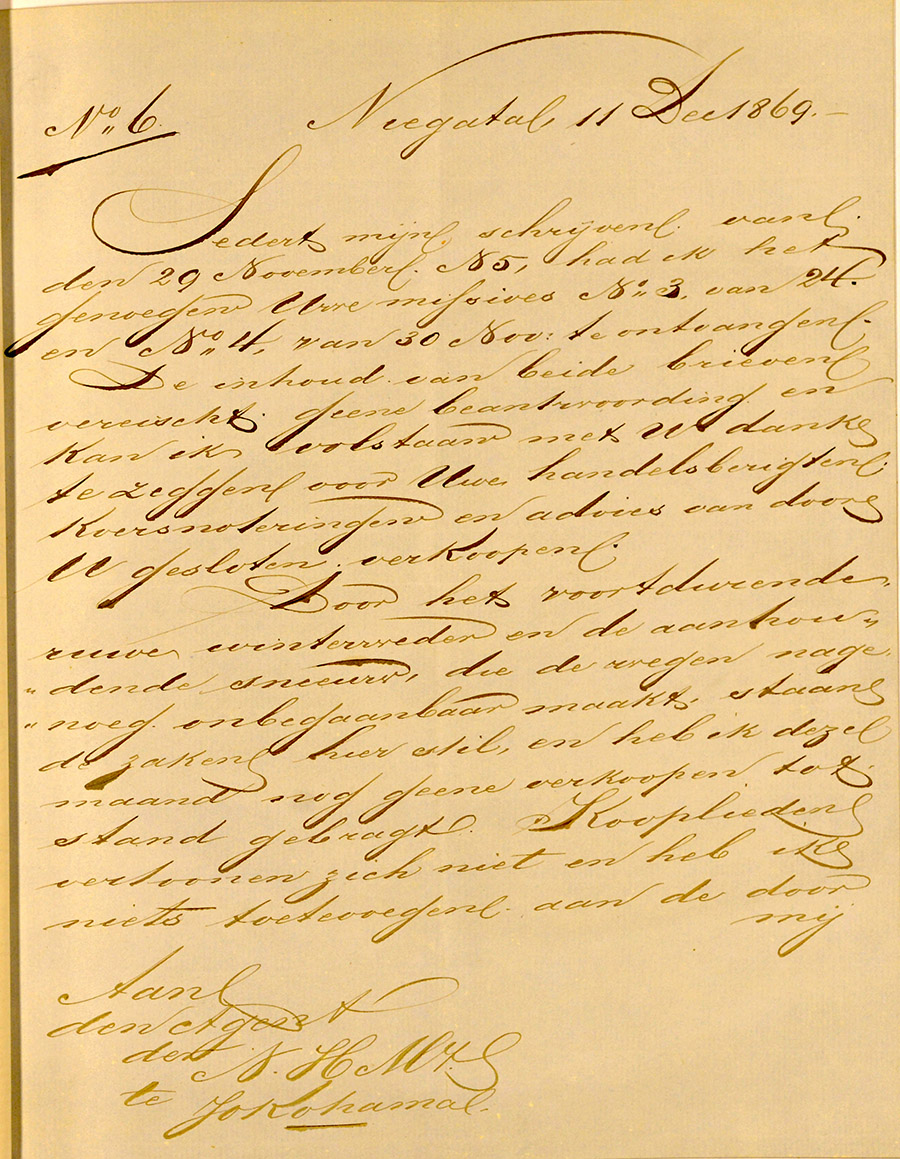 No. 6. Neegata, 11 Dec 1869.–
Sedert mijn schrijven van
den 29 November N5, had ik het
genoegen Uwe missives No. 3, van 24.
en No. 4, van 30 Nov: te ontvangen.
De inhoud van beide brieven
vereischt geene beantwoording en
kan ik volstaan met U dank
te zeggen voor Uwe handelsberigten
koersnoteringen en advies van door
U gesloten verkoopen.
Door het voortdurende
ruwe winterweder en de aanhou„
„dende sneeuw, die de wegen nage„
„noeg onbegaanbaar maakt, staan
de zaken hier stil, en heb ik deze
maand nog geene verkoopen tot
stand gebragt. Kooplieden
vertoonen zich niet en heb ik
niets toetevoegen aan de door
mij
Aan
den Agent
der N. H. Mij.
te Jokohama.